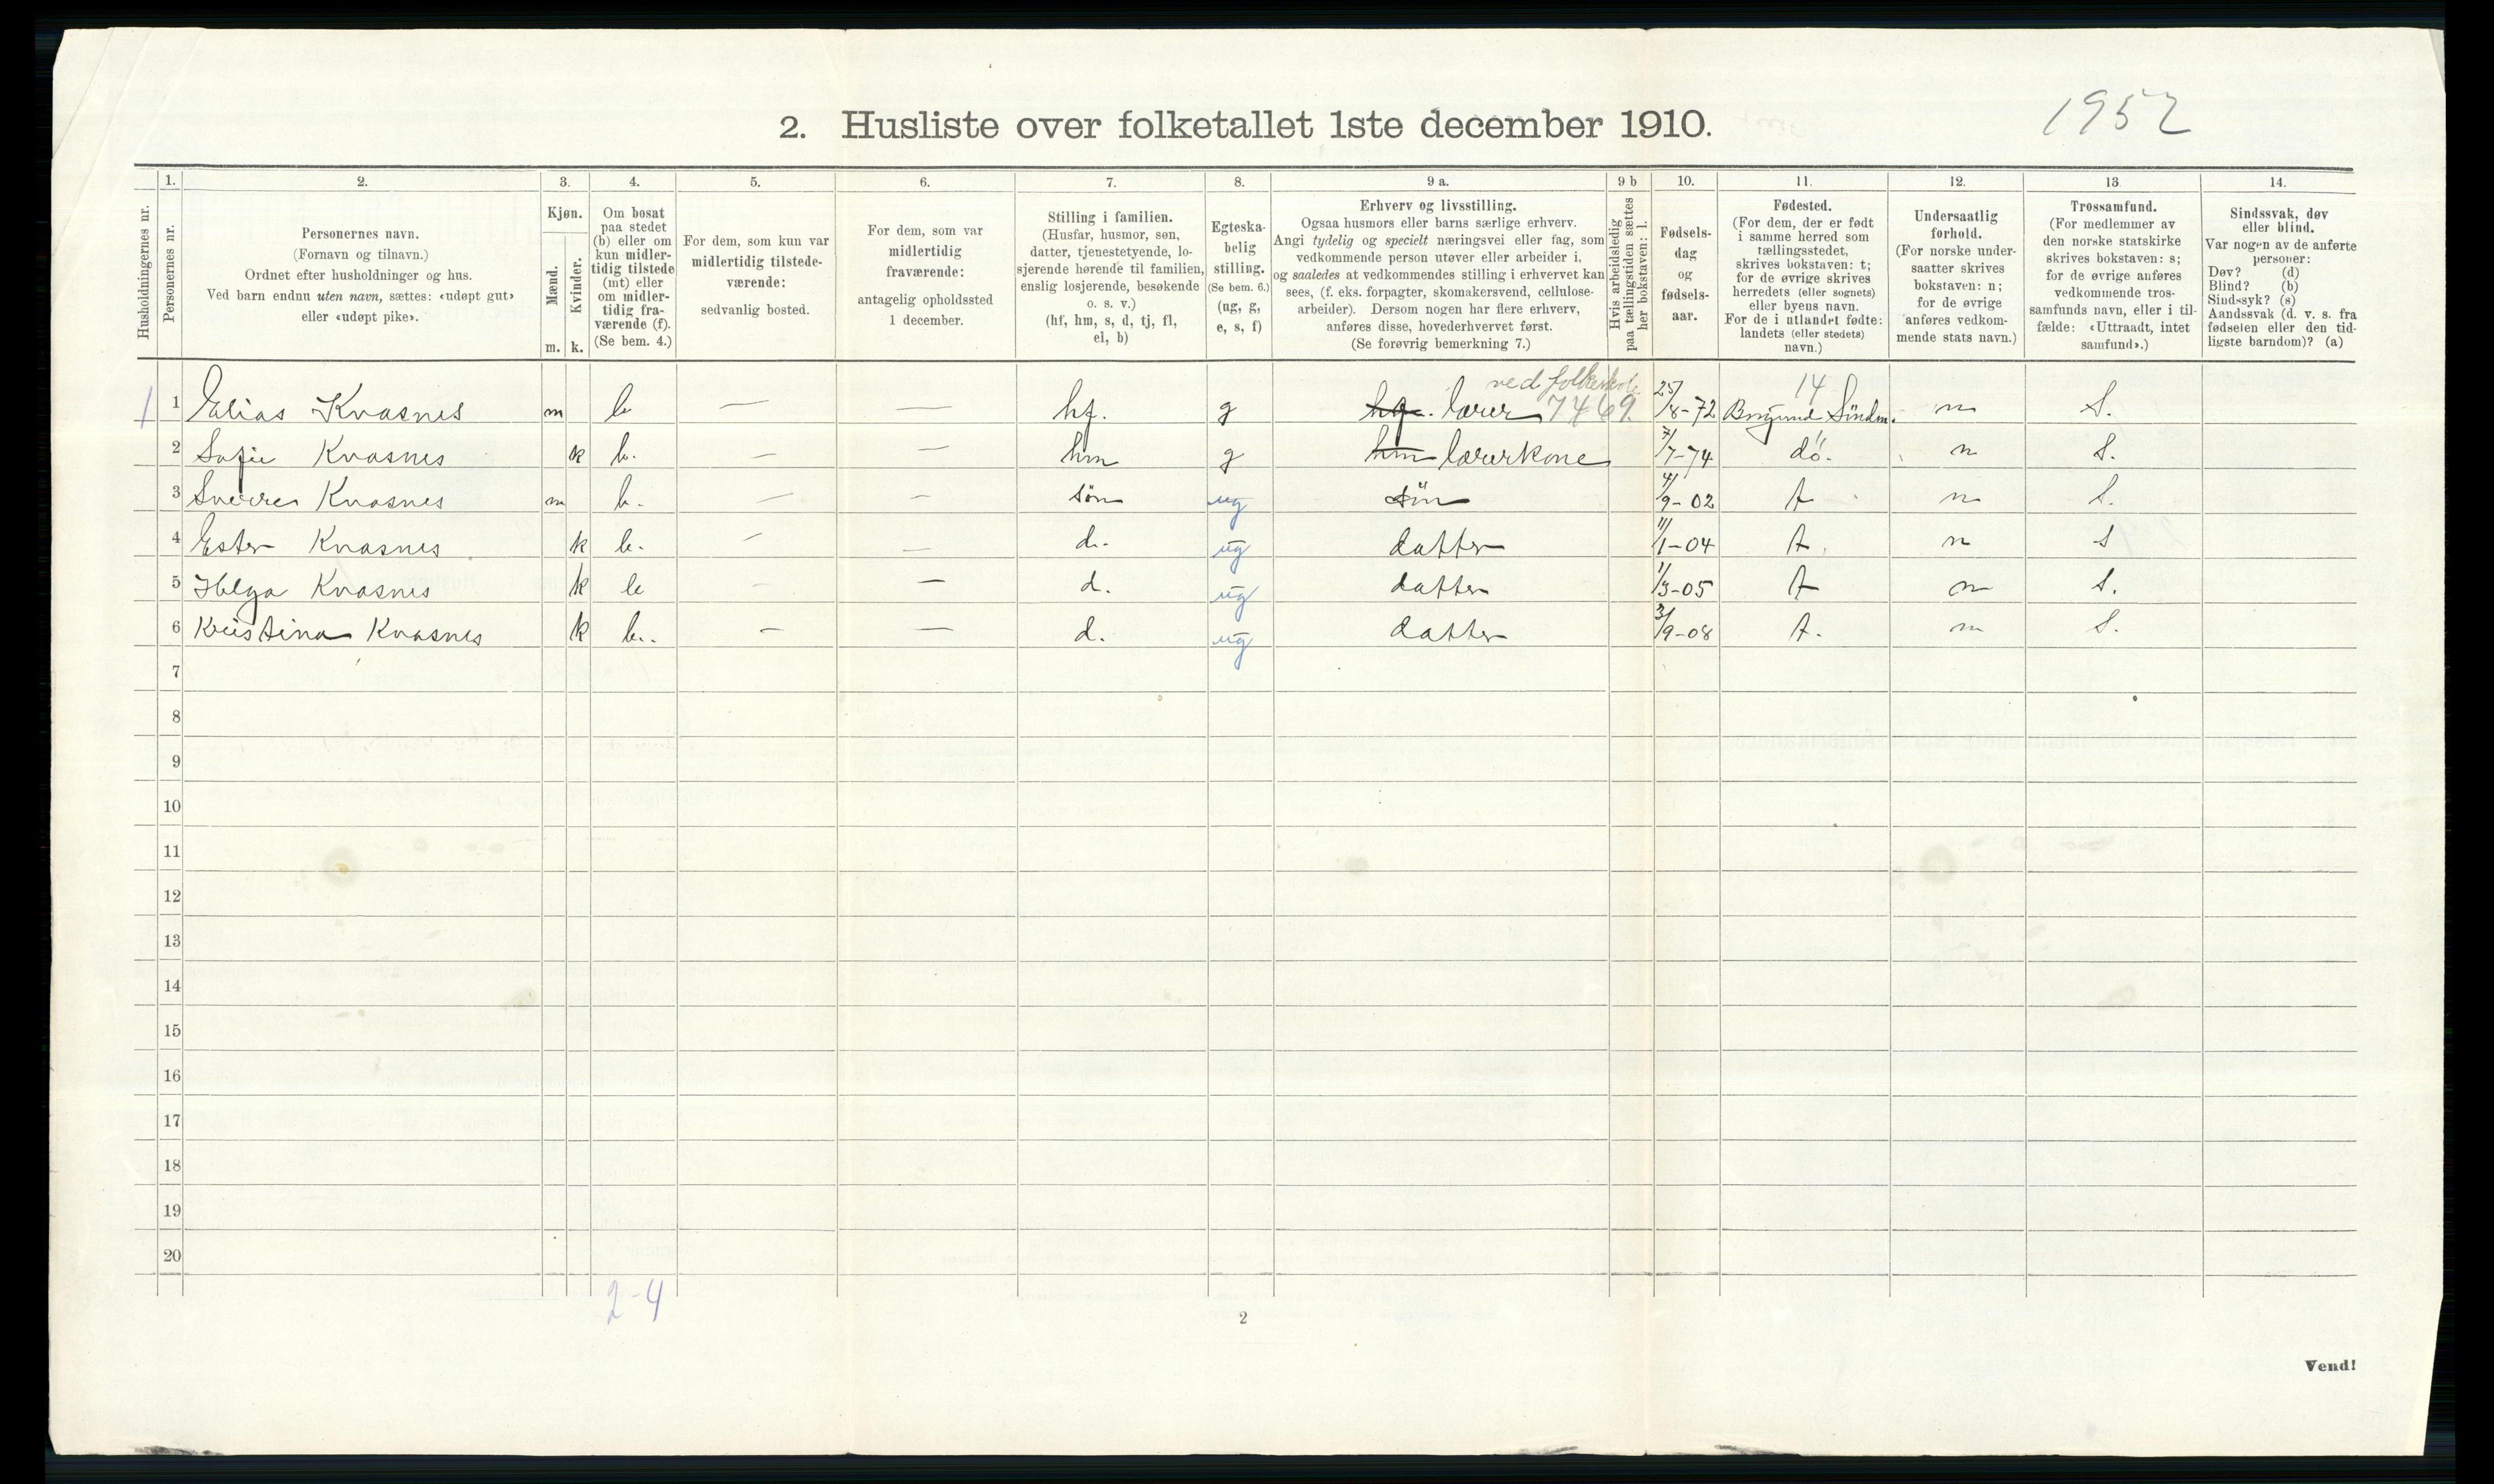 1952
2. Husliste over folketallet 1ste december 1910.
Husholdningernes nr.
1.
Personernes nr.
2.
Personernes navn.
(Fornavn og tilnavn.)
Ordnet efter husholdninger og hus.
Ved barn endnu uten navn, sættes: «udøpt gut»
eller «udøpt pike».
3.
Kjøn.
Mænd.
Kvinder.
m. k.
4.
Om bosat
paa stedet
(b) eller om
kun midler-
tidig tilstede
(mt) eller
om midler-
tidig fra-
værende (f).
(Se bem. 4.)
5.
For dem, som kun var
midlertidig tilstede-
værende:
sedvanlig bosted.
6.
For dem, som var
midlertidig
fraværende:
antagelig opholdssted
1 december.
7.
Stilling i familien.
(Husfar, husmor, søn,
datter, tjenestetyende, lo-
sjerende hørende til familien,
enslig losjerende, besøkende
o. s. v.)
(hf, hm, s, d, tj, fl,
el, b)
8.
Egteska-
belig
stilling.
(Se bem. 6.)
(ug, g,
e, s, f)
9 a.
Erhverv og livsstilling.
Ogsaa husmors eller barns særlige erhverv.
Angi tydelig og specielt næringsvei eller fag, som
vedkommende person utøver eller arbeider i,
og saaledes at vedkommendes stilling i erhvervet kan
sees, (f. eks. forpagter, skomakersvend, cellulose-
arbeider). Dersom nogen har flere erhverv,
anføres disse, hovederhvervet først.
(Se forøvrig bemerkning 7.)
9 b
Hvis arbeidsledig
paa tællingstiden sættes
her bokstaven: l.
10.
Fødsels-
dag
og
fødsels-
aar.
11.
Fødested.
(For dem, der er født
i samme herred som
tællingsstedet,
skrives bokstaven: t;
for de øvrige skrives
herredets (eller sognets)
eller byens navn.
For de i utlandet fødte:
landets (eller stedets)
navn.)
12.
Undersaatlig
forhold.
(For norske under-
saatter skrives
bokstaven: n;
for de øvrige
anføres vedkom-
mende stats navn.)
13.
Trossamfund.
(For medlemmer av
den norske statskirke
skrives bokstaven: s;
for de øvrige anføres
vedkommende tros-
samfunds navn, eller i til-
fælde: «Uttraadt, intet
samfund».)
14.
Sindssvak, døv
eller blind.
Var nogen av de anførte
personer:
Døv? (d)
Blind? (b)
Sindssyk? (s)
Aandssvak (d. v. s. fra
fødselen eller den tid-
ligste barndom)? (a)
ved folkeskole 14
1 1 Elias Kvasnes m b — — hf. g hf. lærer 7469. 25/8-72 Borgund Söndm. n S.
2 Sofie Kvasnes k b. — — hm g hm lærerkone 7/7-74 do. n S.
3 Sverre Kvasnes m b. — — sön ug sön 4/9-02 t n S.
4 Ester Kvasnes k b. — — d. ug datter 11/1-04 t. n S
5 Helga Kvasnes k b — — d. ug datter 1/3-05 t n S.
6 Kristina Kvasnes k b. — — d. ug datter 3/9-08 t. n S.
7
8
9
10
11
12
13
14
15
16
17
18
19
20
2-4
2
Vend!